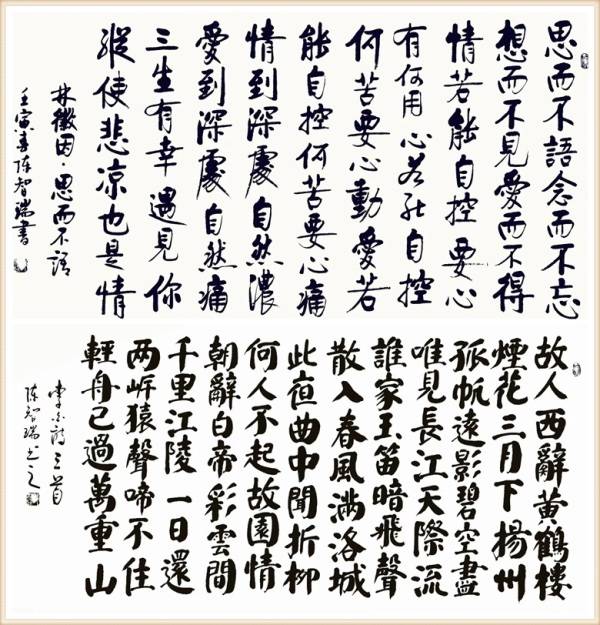 思而不語念而不忘
想而不見愛而不得
情若能自控要心
有何用心若能自控
何苦要心動愛若
能自控何苦要心痛
情到深處自然濃
愛到深處自然痛
三生有幸遇見你
縱使悲凉也是情
林徽因·思而不语
壬寅春陈智瑞書
故人西辭黄鶴樓
煙花三月下揚州
孤帆遠影碧空盡
唯見長江天際流
誰家玉笛暗飛聲
散入春風滿洛城
此夜曲中聞折柳
何人不起故園情
朝辭白帝彩雲間
千里江陵一日還
两岸猿聲啼不住
輕舟已過萬重山
李白诗三首
陈智瑞书之